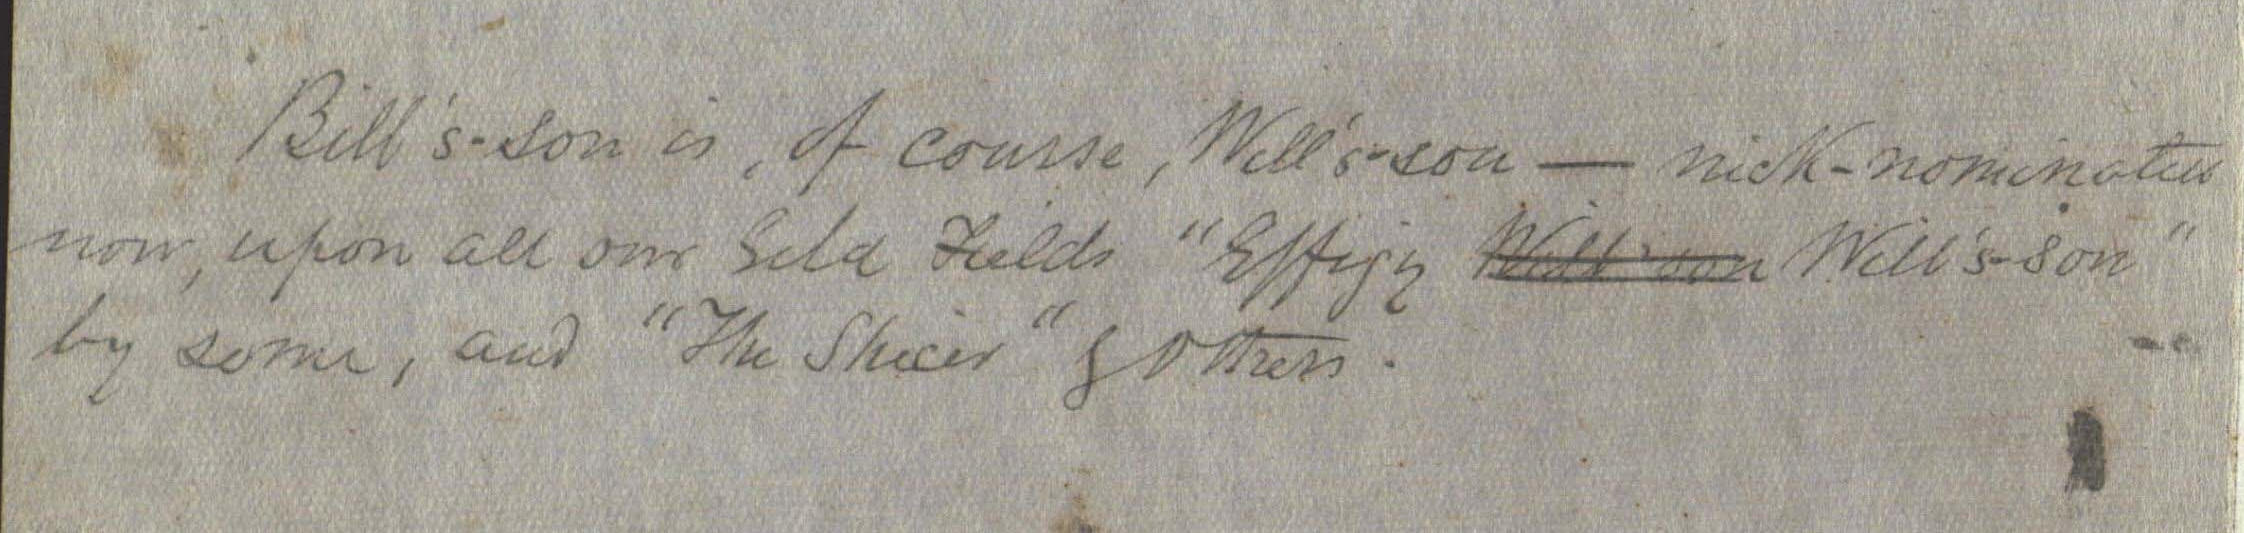 Bill's-son is, of course, Will's-son — nick-nominated
now, upon all our Gold Fields "Effigy ~~Will'son~~ Will's-son"
by some, and "The Shicer" by others.